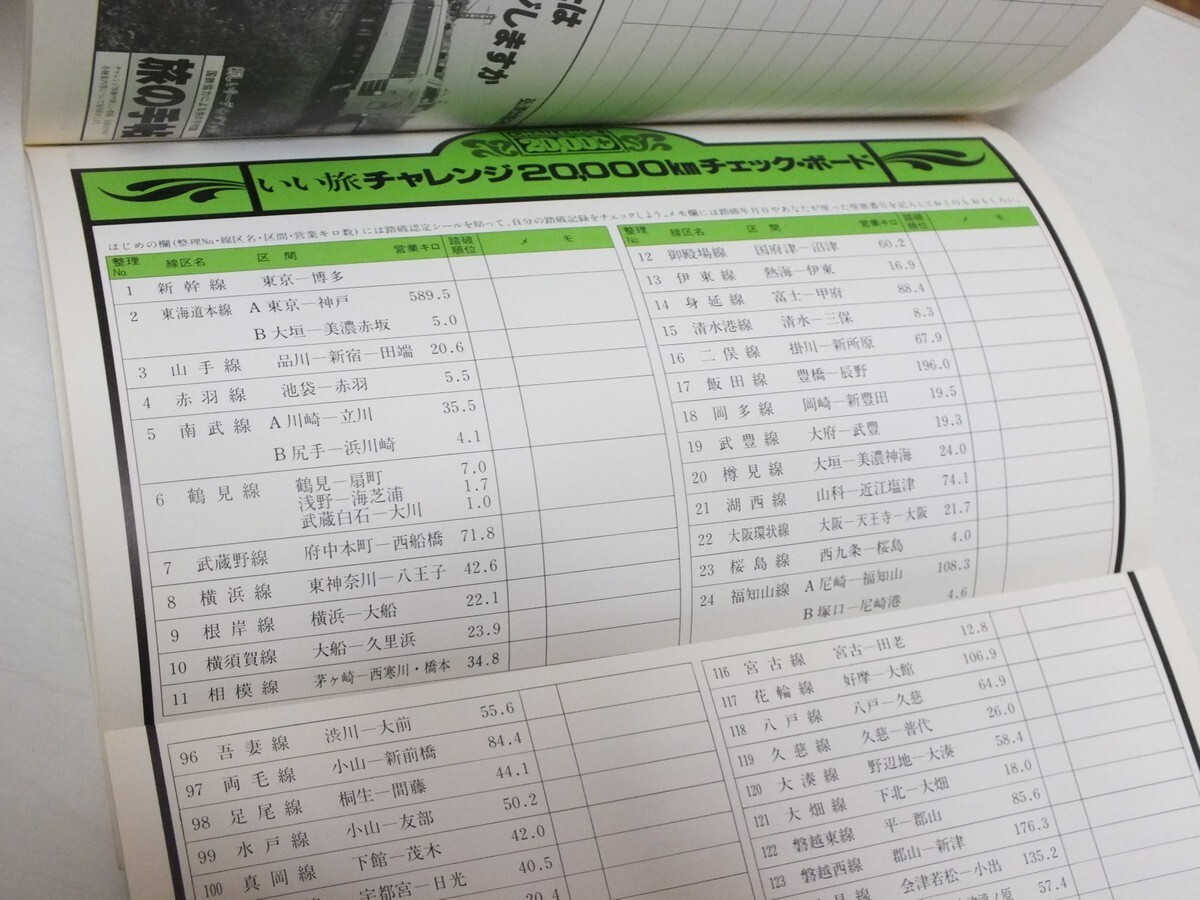 には
どしますか
旅の手帖
いい旅チャレンジ20,000kmチェック・ボード
はじめの欄(整理No.・線区名・区間・営業キロ数)には踏破認定シールを貼って、自分の踏破記録をチェックしよう。メモ欄には踏破年月日やあなたが座った座席番号を記入しておくのもおもしろい。
整理No. 線区名 区間 営業キロ 踏破順位 メモ
1 新幹線 東京―博多
2 東海道本線 A 東京―神戸 589.5
B 大垣―美濃赤坂 5.0
3 山手線 品川―新宿―田端 20.6
4 赤羽線 池袋―赤羽 5.5
5 南武線 A 川崎―立川 35.5
B 尻手―浜川崎 4.1
6 鶴見線 鶴見―扇町 7.0
浅野―海芝浦 1.7
武蔵白石―大川 1.0
7 武蔵野線 府中本町―西船橋 71.8
8 横浜線 東神奈川―八王子 42.6
9 根岸線 横浜―大船 22.1
10 横須賀線 大船―久里浜 23.9
11 相模線 茅ヶ崎―西寒川・橋本 34.8
整理No. 線区名 区間 営業キロ 踏破順位 メモ
12 御殿場線 国府津―沼津 60.2
13 伊東線 熱海―伊東 16.9
14 身延線 富士―甲府 88.4
15 清水港線 清水―三保 8.3
16 二俣線 掛川―新所原 67.9
17 飯田線 豊橋―辰野 196.0
18 岡多線 岡崎―新豊田 19.5
19 武豊線 大府―武豊 19.3
20 樽見線 大垣―美濃神海 24.0
21 湖西線 山科―近江塩津 74.1
22 大阪環状線 大阪―天王寺―大阪 21.7
23 桜島線 西九条―桜島 4.0
24 福知山線 A 尼崎―福知山 108.3
B 塚口―尼崎港 4.6
96 吾妻線 渋川―大前 55.6
97 両毛線 小山―新前橋 84.4
98 足尾線 桐生―間藤 44.1
99 水戸線 小山―友部 50.2
100 真岡線 下館―茂木 42.0
宇都宮―日光 40.5
20.4
116 宮古線 宮古―田老 12.8
117 花輪線 好摩―大館 106.9
118 八戸線 八戸―久慈 64.9
119 久慈線 久慈―普代 26.0
120 大湊線 野辺地―大湊 58.4
121 大畑線 下北―大畑 18.0
122 磐越東線 平―郡山 85.6
123 磐越西線 郡山―新津 176.3
会津若松―小出 135.2
57.4